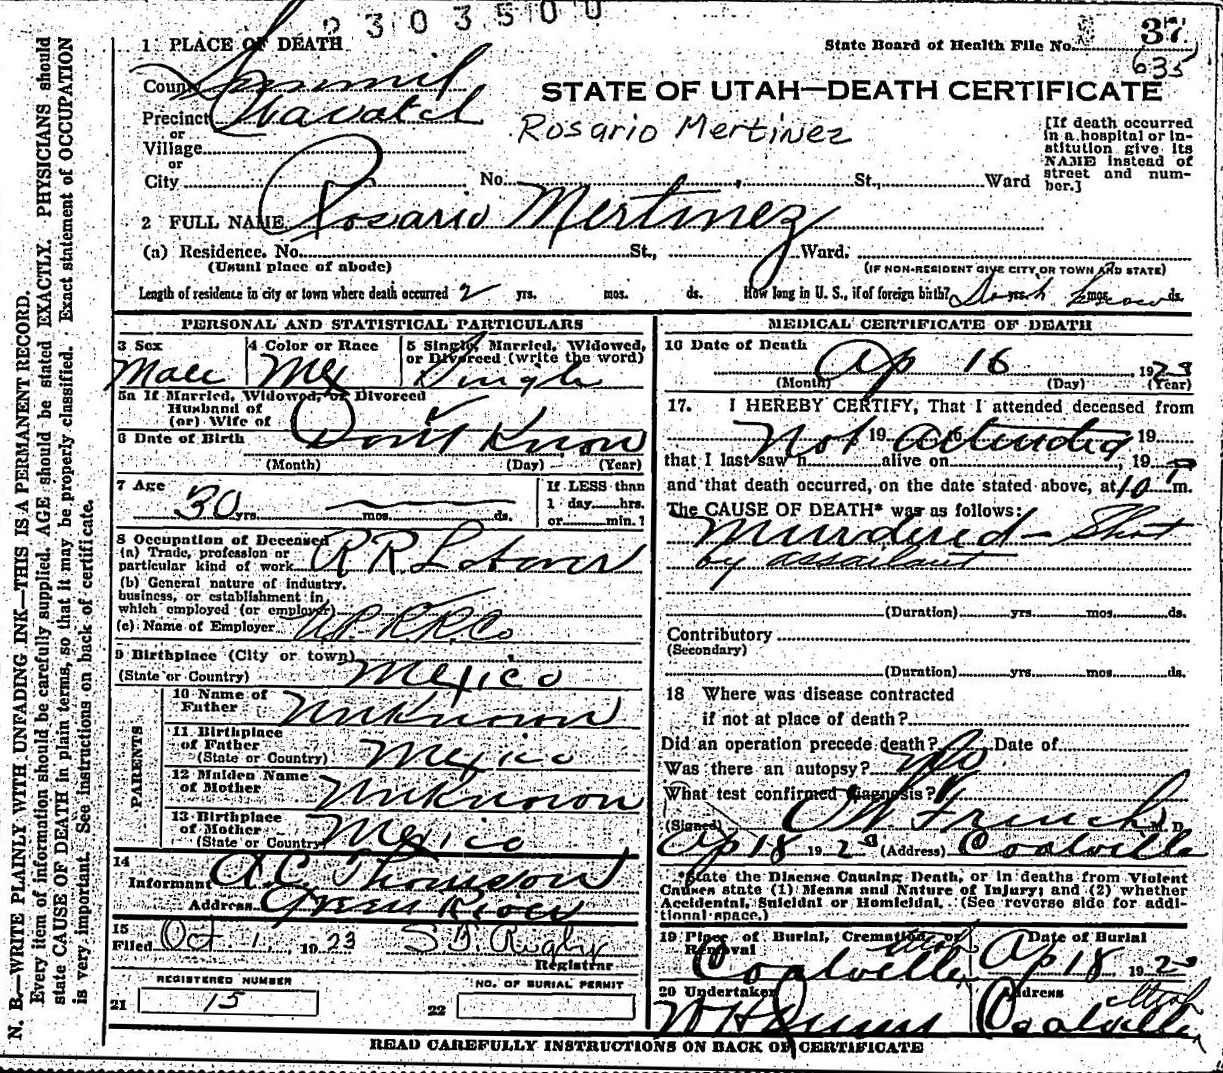 2303500
1 PLACE OF DEATH
State Board of Health File No. 37
635
County Summit
STATE OF UTAH—DEATH CERTIFICATE
Precinct Wasatch
Rosario Mertinez
or
Village
or
City No. St., Ward
[If death occurred in a hospital or institution give its NAME instead of street and number.]
2 FULL NAME Rosario Mertinez
(a) Residence. No. St., Ward.
(Usual place of abode)
(IF NON-RESIDENT GIVE CITY OR TOWN AND STATE)
Length of residence in city or town where death occurred 2 yrs. mos. ds.
How long in U. S., if of foreign birth? Don't Know yrs. mos. ds.
PERSONAL AND STATISTICAL PARTICULARS
3 Sex Male
4 Color or Race Mex
5 Single, Married, Widowed, or Divorced (write the word) Single
5a If Married, Widowed, or Divorced
Husband of
(or) Wife of
6 Date of Birth Don't Know
(Month) (Day) (Year)
7 Age 30 yrs. mos. ds.
If LESS than
1 day hrs.
or min.?
8 Occupation of Deceased
(a) Trade, profession or
particular kind of work R R Laborer
(b) General nature of industry,
business, or establishment in
which employed (or employer)
(c) Name of Employer U.P. R.R. Co
9 Birthplace (City or town)
(State or Country) Mexico
PARENTS
10 Name of Father Unknown
11 Birthplace of Father
(State or Country) Mexico
12 Maiden Name of Mother Unknown
13 Birthplace of Mother
(State or Country) Mexico
14
Informant A.C. Thomson
Address Green River
15
Filed Oct 1, 1923 Registrar
REGISTERED NUMBER
21 15
NO. OF BURIAL PERMIT
22
MEDICAL CERTIFICATE OF DEATH
16 Date of Death Ap 16 1923
(Month) (Day) (Year)
17. I HEREBY CERTIFY, That I attended deceased from
Not 19 attended 19
that I last saw h alive on , 19
and that death occurred, on the date stated above, at 10 P m.
The CAUSE OF DEATH* was as follows:
Murdered – Shot
by assailant
(Duration) yrs. mos. ds.
Contributory
(Secondary)
(Duration) yrs. mos. ds.
18 Where was disease contracted
if not at place of death?
Did an operation precede death? Date of
Was there an autopsy? No
What test confirmed diagnosis?
(Signed) O W French M. D.
Ap 18 192 (Address) Coalville
*State the Disease Causing Death, or in deaths from Violent
Causes state (1) Means and Nature of Injury; and (2) whether
Accidental, Suicidal or Homicidal. (See reverse side for addi-
tional space.)
19 Place of Burial, Cremation or Removal Coalville, Utah
Date of Burial Ap 18 192
20 Undertaker
Address Coalville Utah
READ CAREFULLY INSTRUCTIONS ON BACK OF CERTIFICATE
N. B.—WRITE PLAINLY WITH UNFADING INK—THIS IS A PERMANENT RECORD.
Every item of information should be carefully supplied. AGE should be stated EXACTLY. PHYSICIANS should
state CAUSE OF DEATH in plain terms, so that it may be properly classified. Exact statement of OCCUPATION
is very important. See instructions on back of certificate.